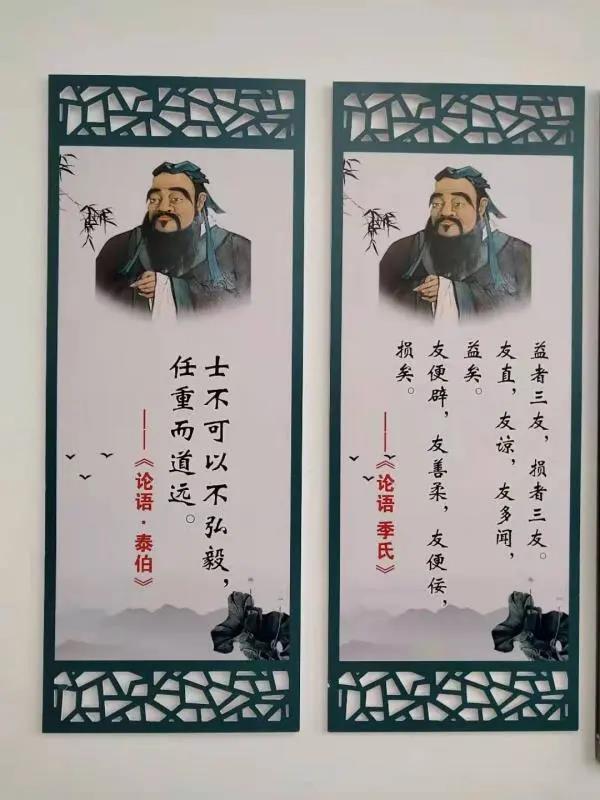 士不可以不弘毅，
任重而道远。
——《论语·泰伯》
益者三友，损者三友。
友直，友谅，友多闻，
益矣。
友便辟，友善柔，友便佞，
损矣。
——《论语 季氏》